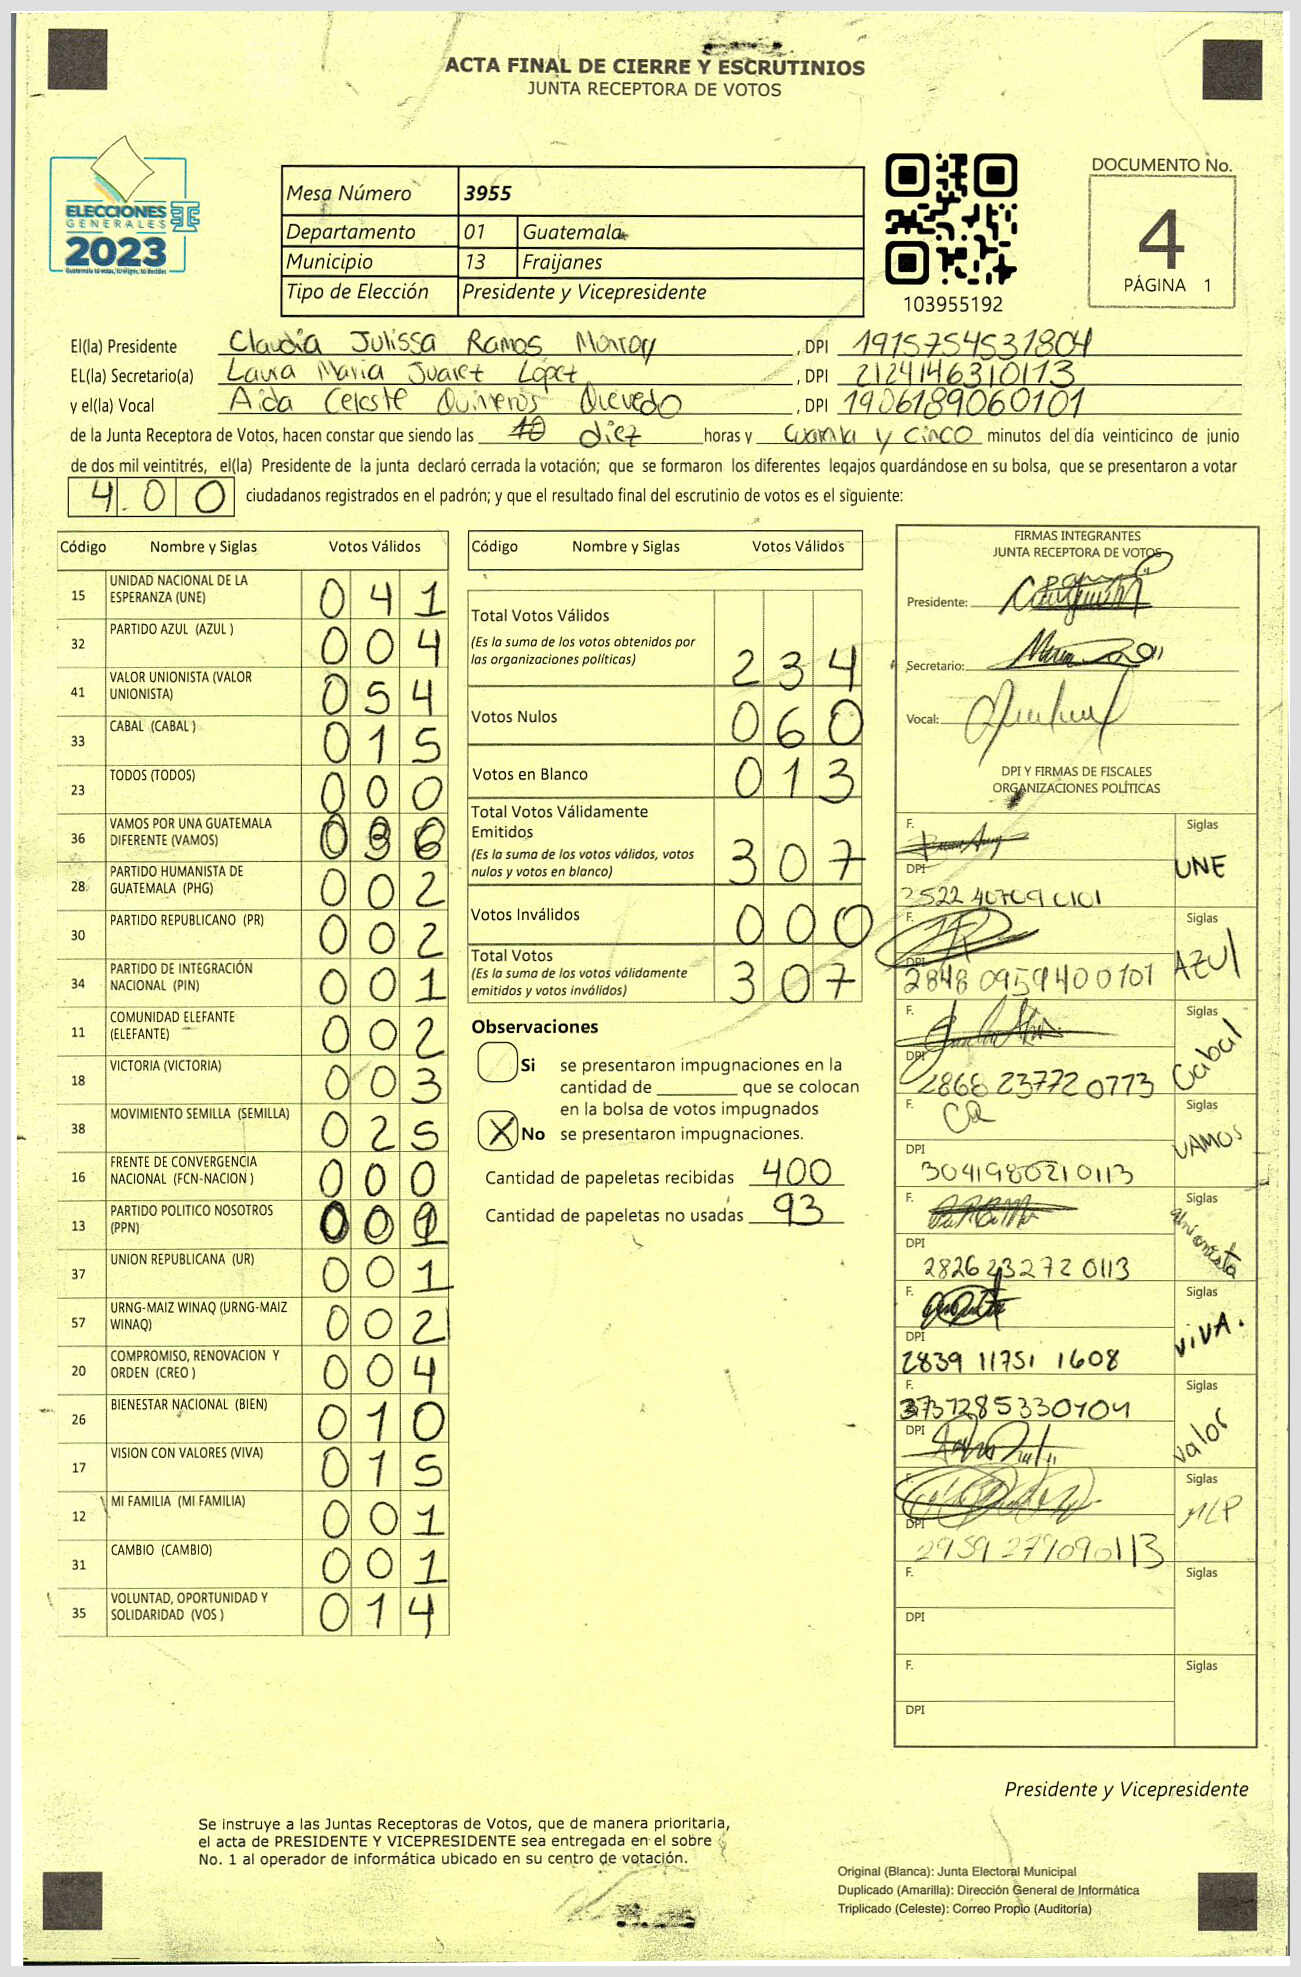 ACTA FINAL DE CIERRE Y ESCRUTINIOS
JUNTA RECEPTORA DE VOTOS
ELECCIONES
GENERALES
2023
Mesa Número 3955
Departamento 01 Guatemala
Municipio 13 Fraijanes
Tipo de Elección Presidente y Vicepresidente
103955192
DOCUMENTO No.
4
PÁGINA 1
El(la) Presidente Claudia Julissa Ramos Monroy, DPI 1915754531804
EL(la) Secretario(a) Laura Maria Juarez Lopez, DPI 2124146310113
y el(la) Vocal Aida Celeste Quineros Quevedo, DPI 1906189060101
de la Junta Receptora de Votos, hacen constar que siendo las diez horas y cuarenta y cinco minutos del día veinticinco de junio
de dos mil veintitrés, el(la) Presidente de la junta declaró cerrada la votación; que se formaron los diferentes legajos guardándose en su bolsa, que se presentaron a votar
4.00 ciudadanos registrados en el padrón; y que el resultado final del escrutinio de votos es el siguiente:
Código Nombre y Siglas Votos Válidos
15 UNIDAD NACIONAL DE LA ESPERANZA (UNE) 041
32 PARTIDO AZUL (AZUL ) 004
41 VALOR UNIONISTA (VALOR UNIONISTA) 054
33 CABAL (CABAL ) 015
23 TODOS (TODOS) 000
36 VAMOS POR UNA GUATEMALA DIFERENTE (VAMOS) 036
28 PARTIDO HUMANISTA DE GUATEMALA (PHG) 002
30 PARTIDO REPUBLICANO (PR) 002
34 PARTIDO DE INTEGRACIÓN NACIONAL (PIN) 001
11 COMUNIDAD ELEFANTE (ELEFANTE) 002
18 VICTORIA (VICTORIA) 003
38 MOVIMIENTO SEMILLA (SEMILLA) 025
16 FRENTE DE CONVERGENCIA NACIONAL (FCN-NACION ) 000
13 PARTIDO POLITICO NOSOTROS (PPN) 001
37 UNION REPUBLICANA (UR) 001
57 URNG-MAIZ WINAQ (URNG-MAIZ WINAQ) 002
20 COMPROMISO, RENOVACION Y ORDEN (CREO ) 004
26 BIENESTAR NACIONAL (BIEN) 010
17 VISION CON VALORES (VIVA) 015
12 MI FAMILIA (MI FAMILIA) 001
31 CAMBIO (CAMBIO) 001
35 VOLUNTAD, OPORTUNIDAD Y SOLIDARIDAD (VOS ) 014
Código Nombre y Siglas Votos Válidos
Total Votos Válidos
(Es la suma de los votos obtenidos por
las organizaciones políticas) 234
Votos Nulos 060
Votos en Blanco 013
Total Votos Válidamente
Emitidos
(Es la suma de los votos válidos, votos
nulos y votos en blanco) 307
Votos Inválidos 000
Total Votos
(Es la suma de los votos válidamente
emitidos y votos inválidos) 307
Observaciones
Si se presentaron impugnaciones en la
cantidad de ________ que se colocan
en la bolsa de votos impugnados
X No se presentaron impugnaciones.
Cantidad de papeletas recibidas 400
Cantidad de papeletas no usadas 93
FIRMAS INTEGRANTES
JUNTA RECEPTORA DE VOTOS
Presidente:
Secretario:
Vocal:
DPI Y FIRMAS DE FISCALES
ORGANIZACIONES POLÍTICAS
F. Siglas
UNE
DPI
F. Siglas
AZUL
DPI
2848 0959400101
F. Siglas
Cabal
DPI
2868 23772 0773
F. Siglas
VAMOS
DPI
3041980210113
F. Siglas
Unionista
DPI
2826 23272 0113
F. Siglas
VIVA.
DPI
2839 11751 1608
F. Siglas
valor
DPI
F. Siglas
MLP
DPI
2959 279090113
F. Siglas
DPI
F. Siglas
DPI
Presidente y Vicepresidente
Se instruye a las Juntas Receptoras de Votos, que de manera prioritaria,
el acta de PRESIDENTE Y VICEPRESIDENTE sea entregada en el sobre
No. 1 al operador de informática ubicado en su centro de votación.
Original (Blanca): Junta Electoral Municipal
Duplicado (Amarilla): Dirección General de Informática
Triplicado (Celeste): Correo Propio (Auditoría)